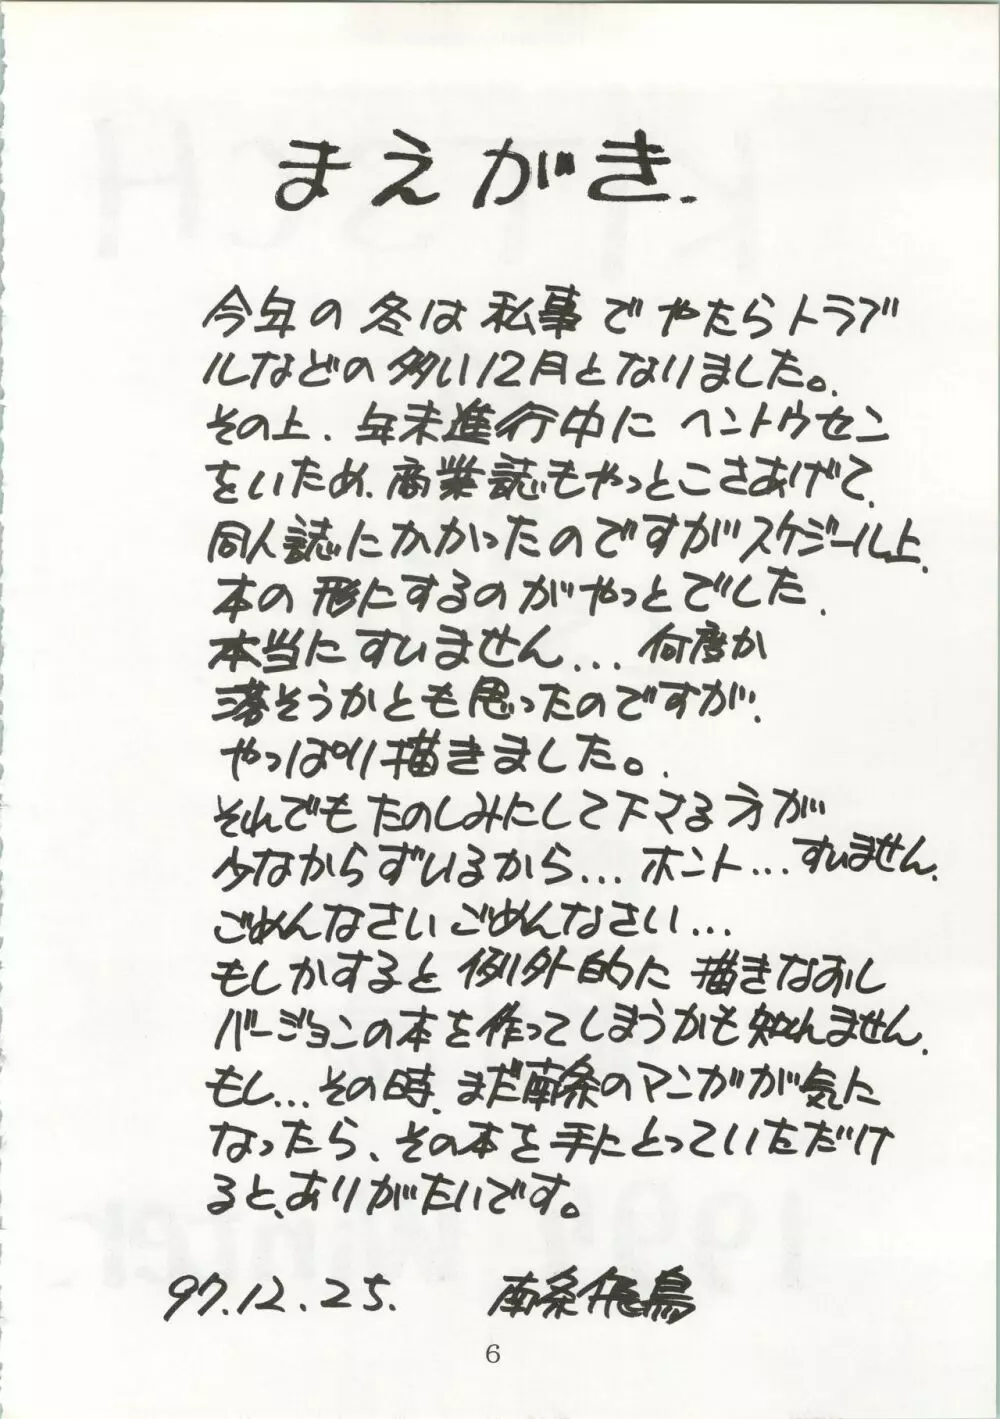 まえがき.
今年の冬は私事でやたらトラブ
ルなどの多い12月となりました。
その上、年末進行中にヘントウセン
をいため、商業誌もやっとこさあげて、
同人誌にかかったのですがスケジール上、
本の形にするのがやっとでした.
本当にすいません... 何度か
落そうかとも思ったのですが、
やっぱり描きました。.
それでもたのしみにして下さる方が
少なからずいるから... ホント... すいません.
ごめんなさいごめんなさい...
もしかすると例外的に描きなおし
バージョンの本を作ってしまうかも知れません.
もし... その時、まだ南条のマンガが気に
なったら、その本を手にとっていただけ
ると、ありがたいです。
97.12.25. 南条飛鳥
6
KITSCH
199 Winter